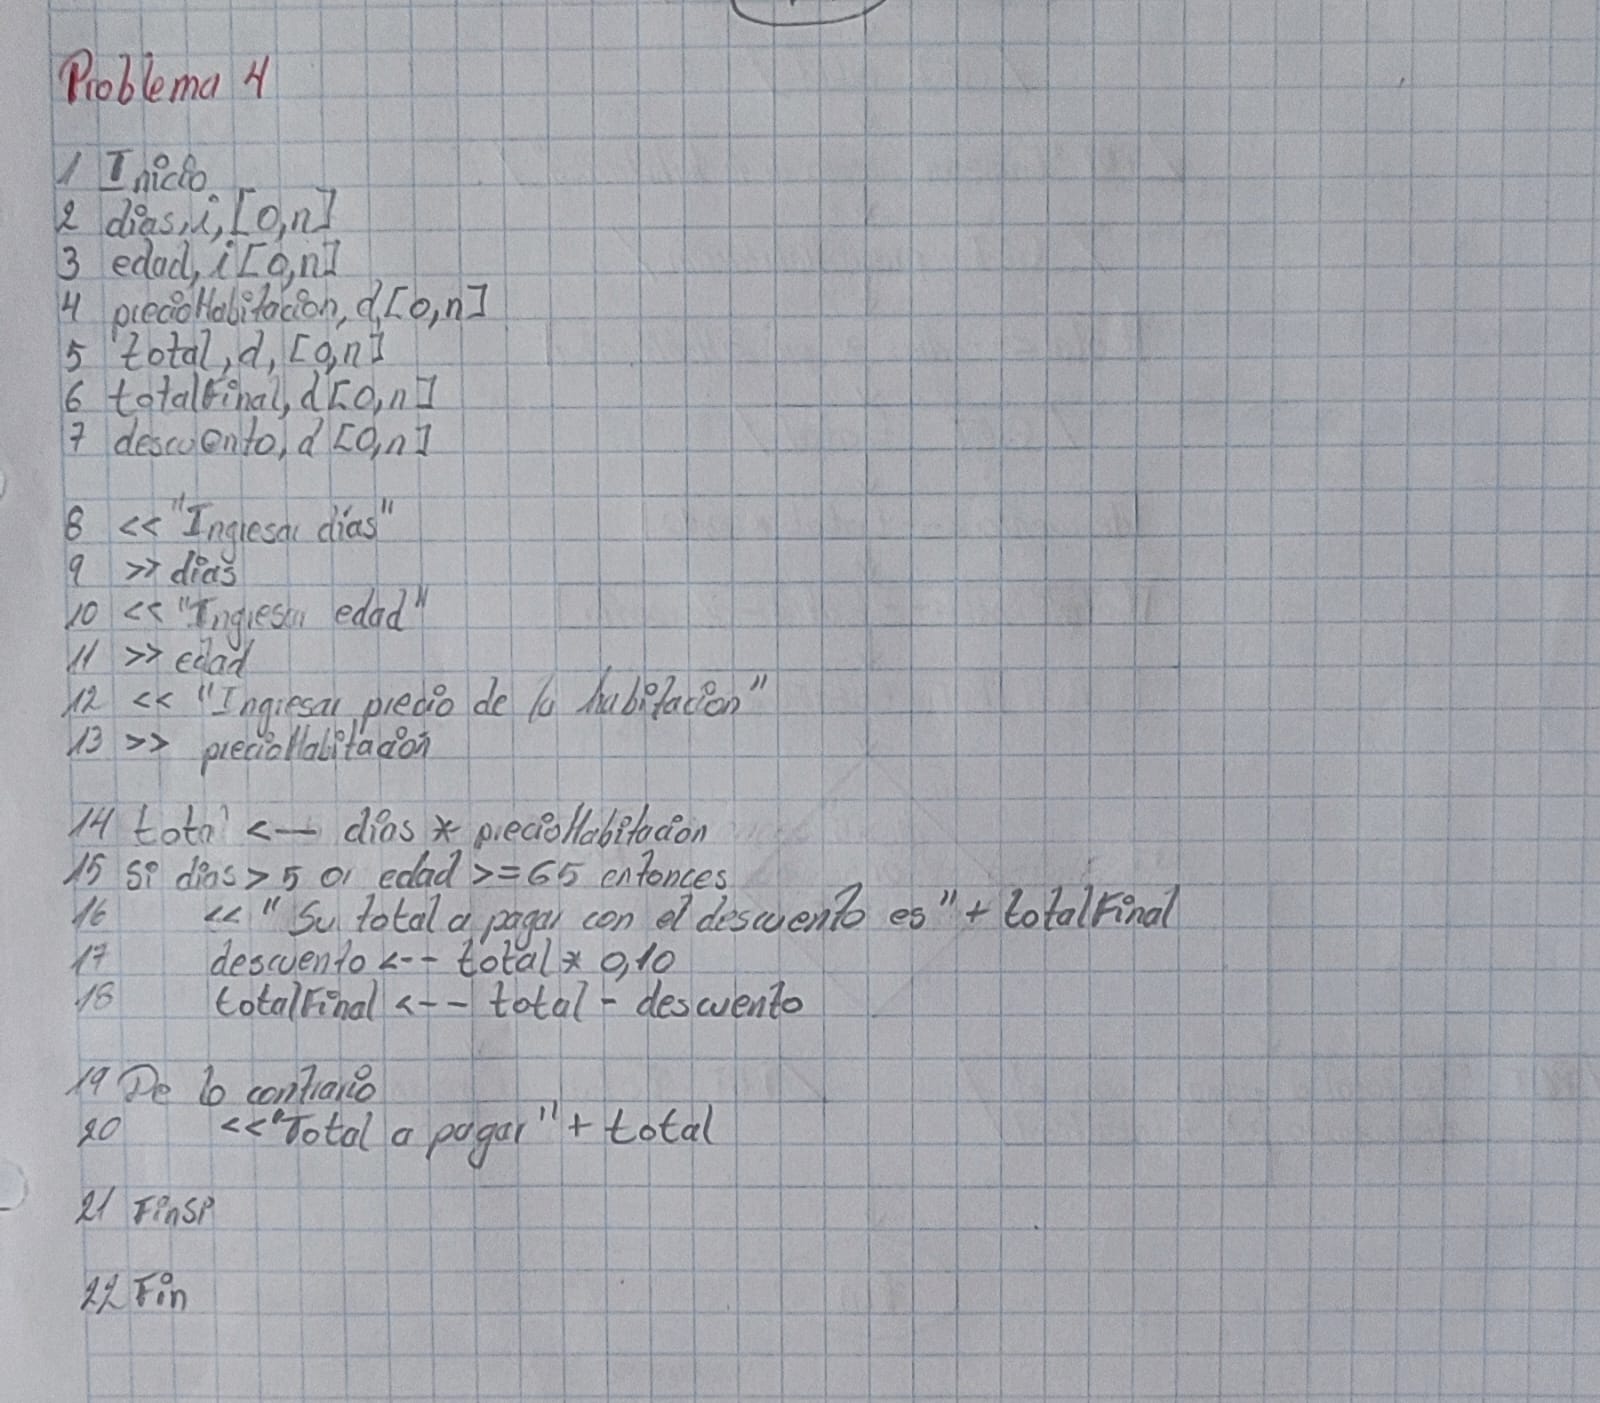 Problema 4
1 Inicio
2 dias, i, [0,n]
3 edad, i [0,n]
4 precioHabitacion, d, [0,n]
5 total, d, [0,n]
6 totalFinal, d [0,n]
7 descuento, d [0,n]
8 << "Ingresar días"
9 >> dias
10 << "Ingresar edad"
11 >> edad
12 << "Ingresar precio de la habitacion"
13 >> precioHabitacion
14 total <-- dias * precioHabitacion
15 Si dias > 5 or edad >= 65 entonces
16 << "Su total a pagar con el descuento es" + totalFinal
17 descuento <-- total * 0,10
18 totalFinal <-- total - descuento
19 De lo contrario
20 << "Total a pagar" + total
21 FinSi
22 Fin